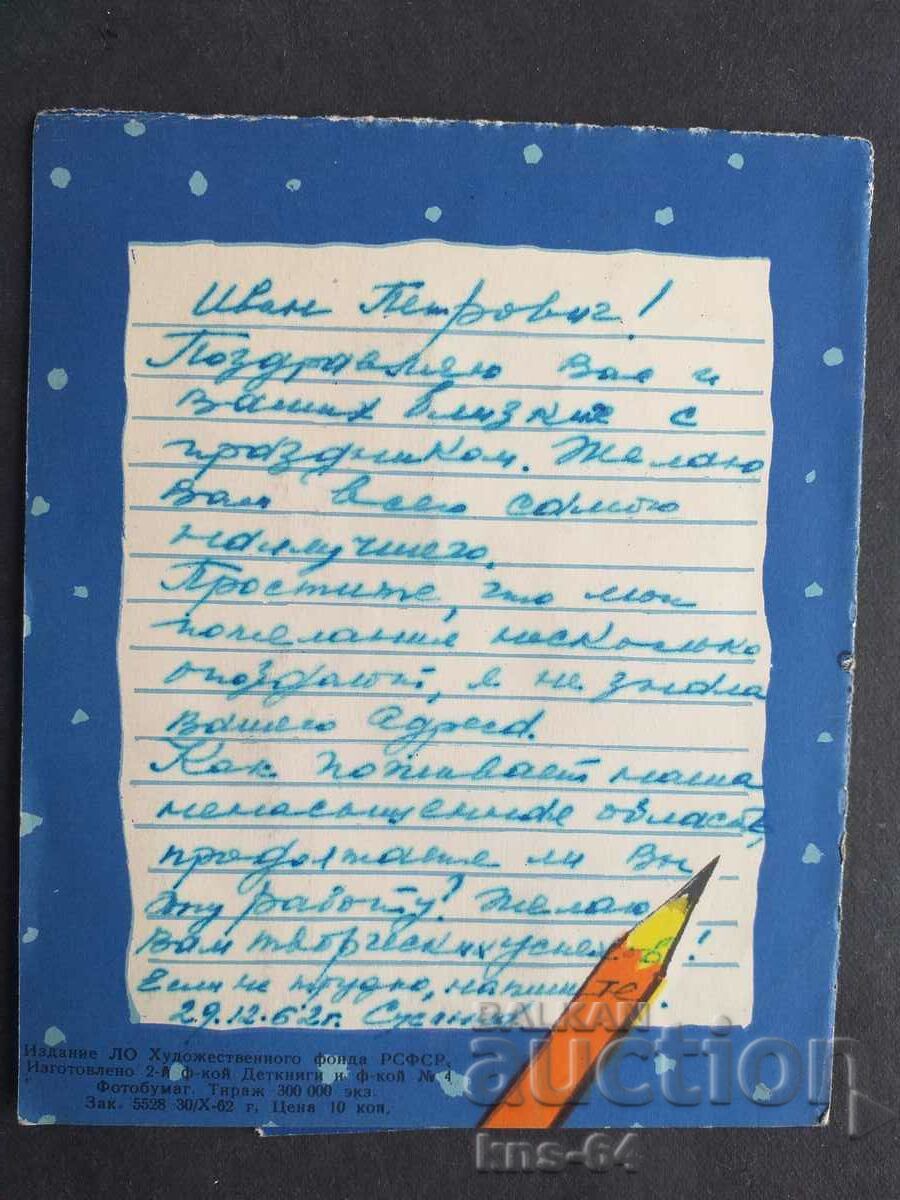 Иван Петрович!
Поздравляю Вас и
Ваших близких с
праздником. Желаю
Вам всего самого
наилучшего.
Простите, что мои
пожелания несколько
опоздают, я не знала
Вашего адреса.
Как поживает наша
ненасыщенная область,
продолжаете ли Вы
эту работу? Желаю
Вам творческих успехов!
Если не трудно, напишите.
29.12.62г.
Издание ЛО Художественного фонда РСФСР.
Изготовлено 2-й ф-кой Деткниги и ф-кой № 4
Фотобумаг. Тираж 300 000 экз.
Зак. 5528 30/X-62 г. Цена 10 коп.
BALKAN
auction
kns-64